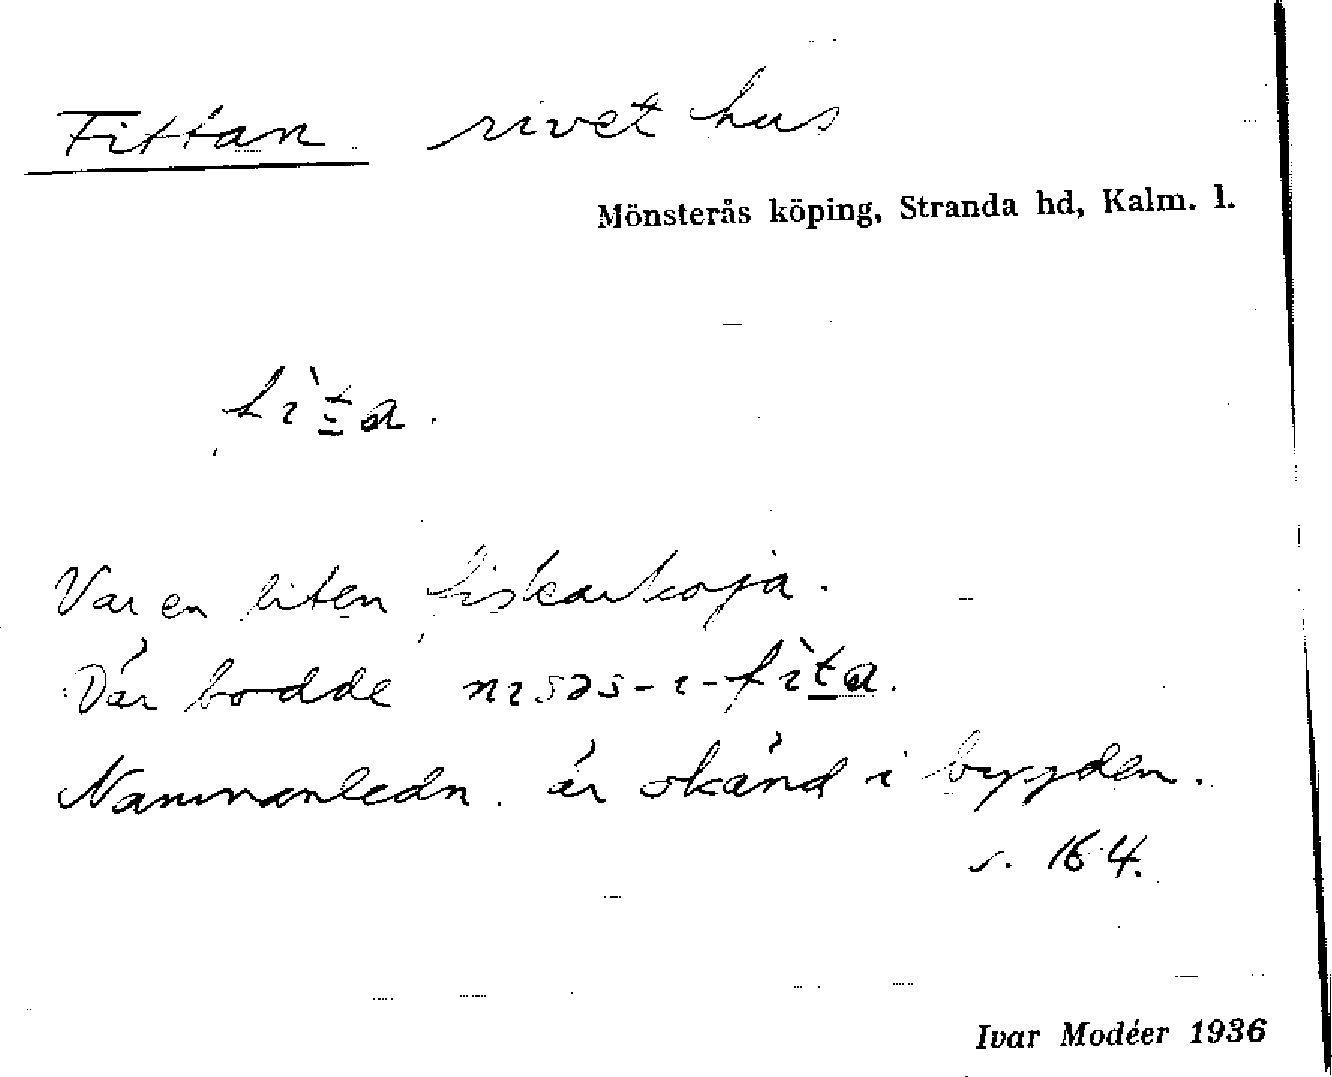 Fittan rivet hus
Mönsterås köping, Stranda hd, Kalm. l.
fìt̲a.
Var en liten fiskarkoja.
Där bodde nɪsəs-ɪ-fìt̲a.
Namnanledn. är okänd i bygden.
s. 164.
Ivar Modéer 1936